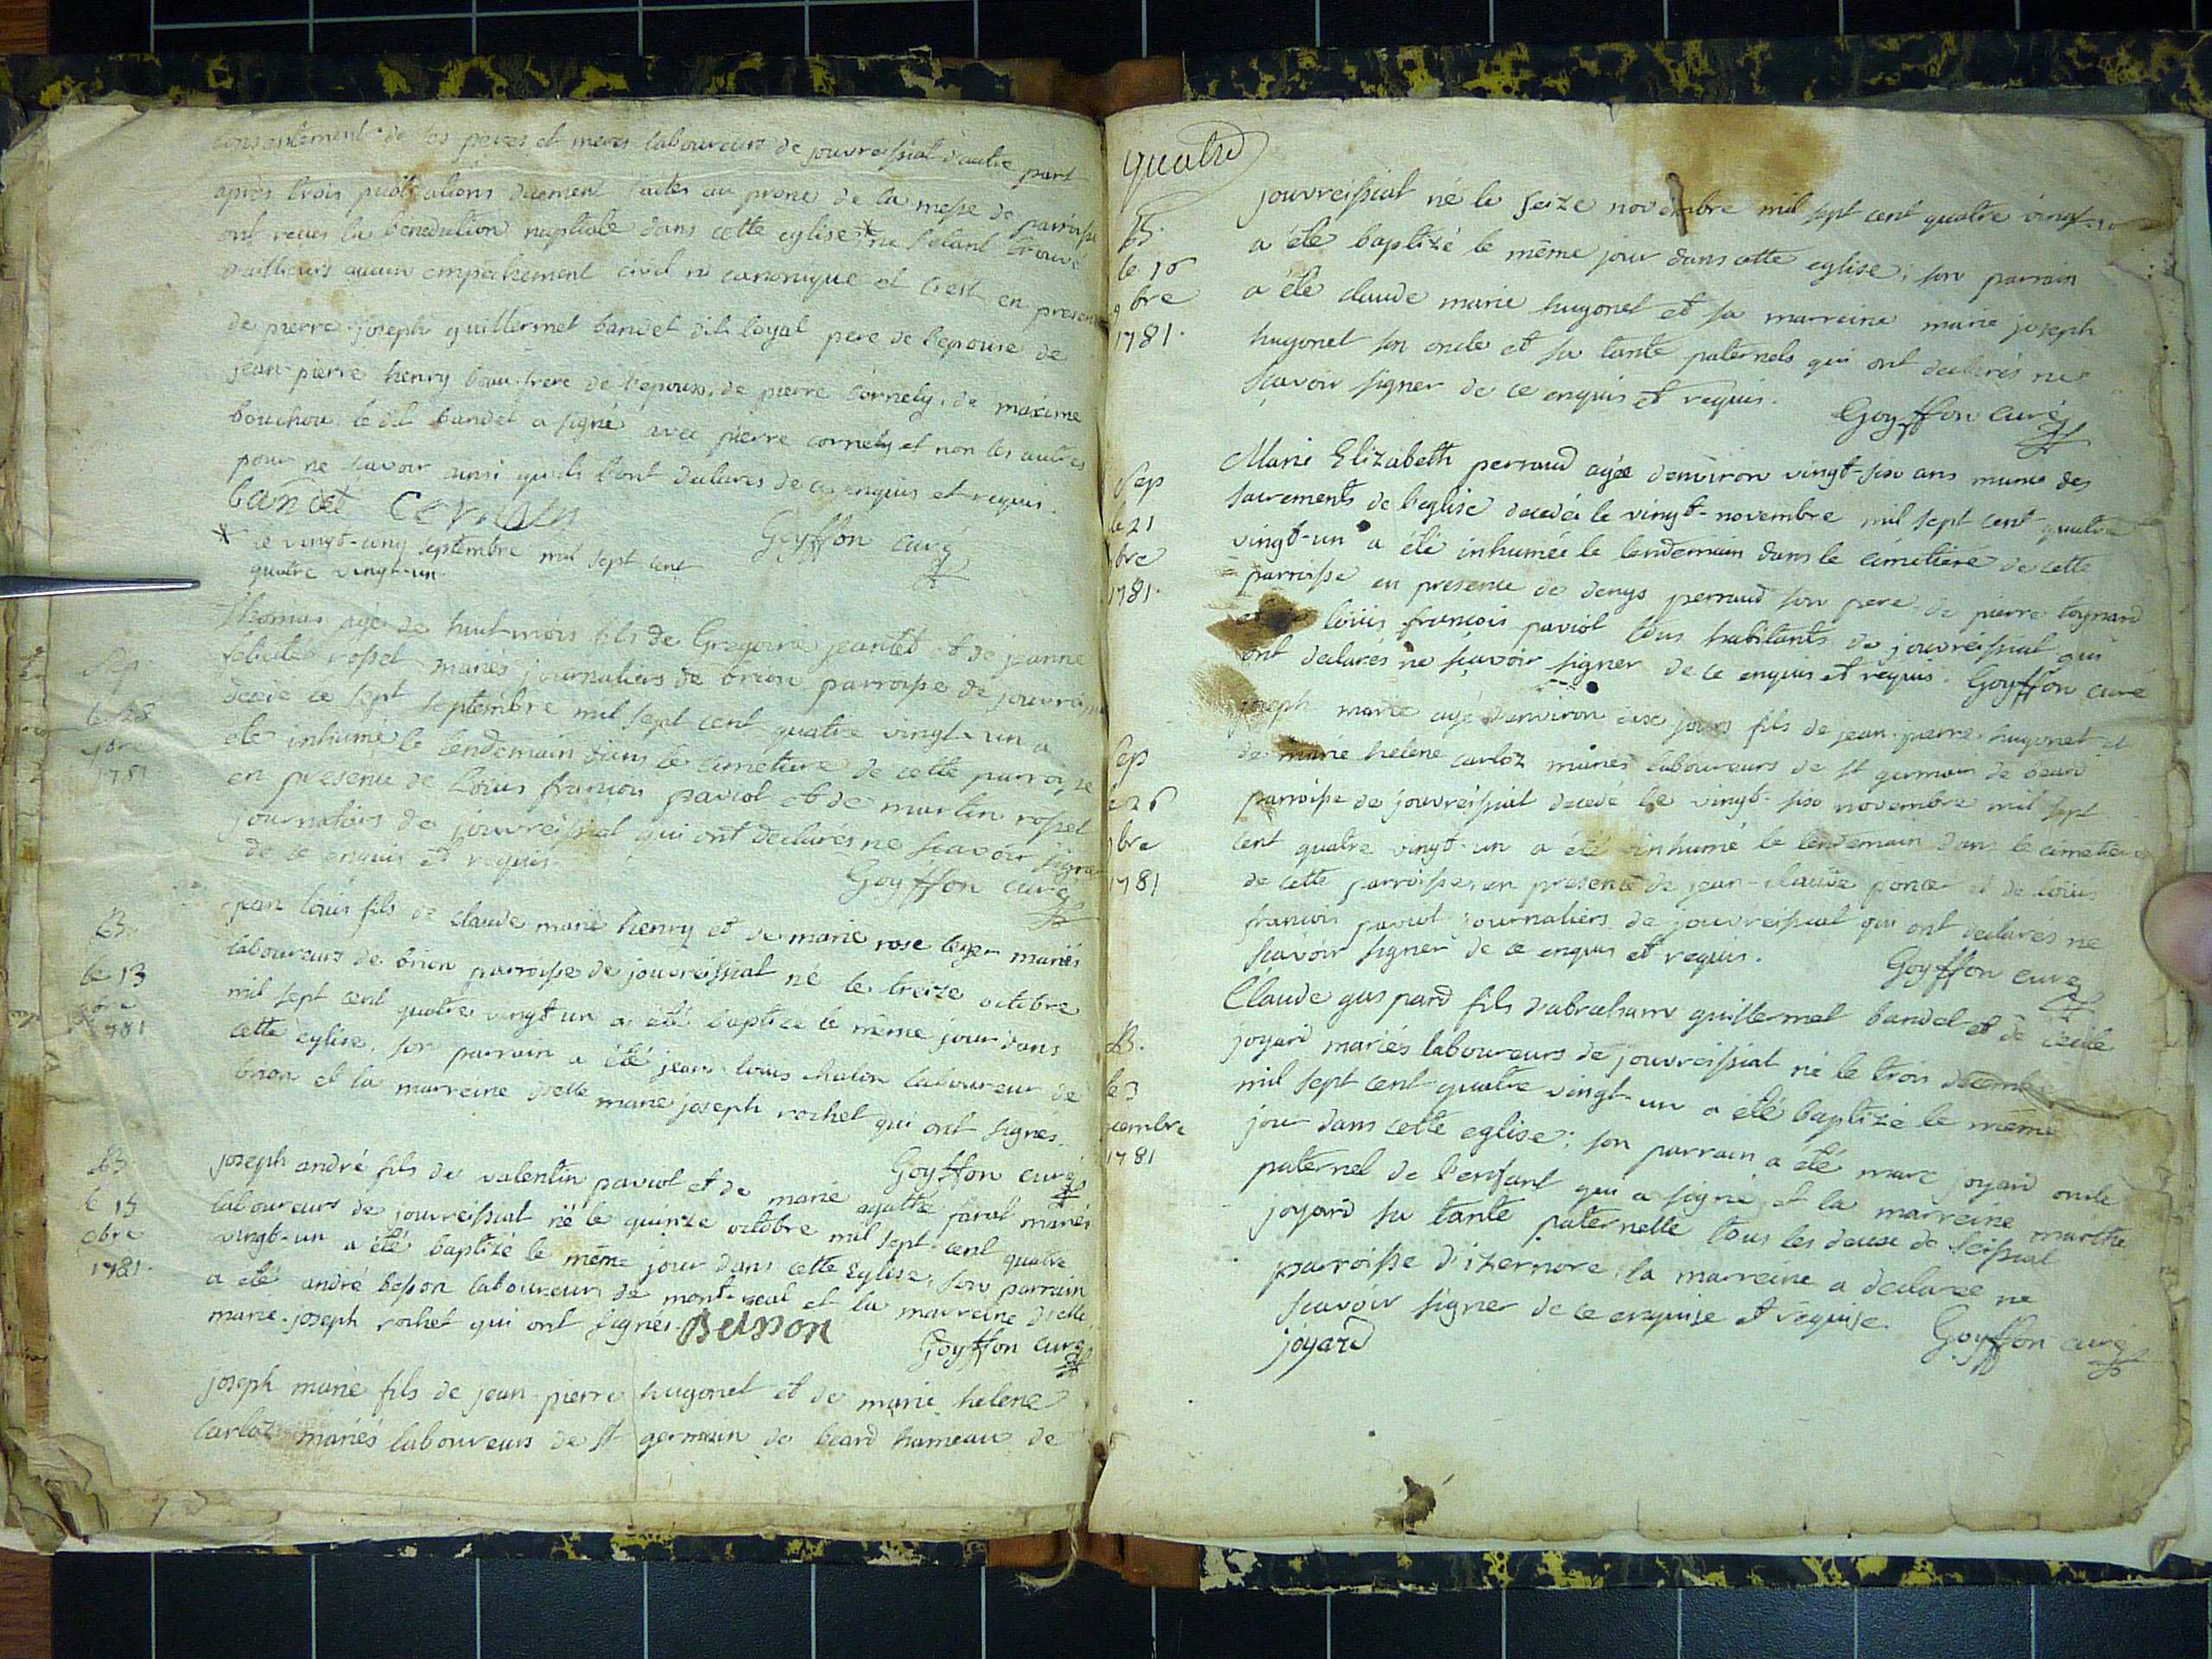 consentement de ses peres et meres laboureurs de jouvreissiat d'autre part
après trois publications duement faites au prone de la messe de parroisse
ont recues la benediction nuptiale dans cette eglise * ne s'etant trouvé
d'ailleurs aucun empechement civil ni canonique et c'est en presence
de pierre joseph guillermet bandet dit loyat pere de l'epouse de
jean-pierre henry beau-frere de l'epouse, de pierre cornely, de maxime
bouchou le dit bandet a signé avec pierre cornely et non les autres
pour ne scavoir ainsi qu'ils l'ont declarés de ce enquis et requis.
bandet
Goyffon curé
* le vingt-cinq septembre mil sept cent
quatre vingt-un
Sep.
le 28
7bre
1781
Thomas agé de huit mois fils de Gregoire jeantet et de jeanne
felicité rosset mariés journaliers de brion parroisse de jouvreissiat
decedé le sept septembre mil sept cent quatre vingt-un a
eté inhumé le lendemain dans le cimetiere de cette parroisse
en presence de loüis francois paviot et de martin rosset
journaliers de jouvreissiat qui ont declarés ne scavoir signer
de ce enquis et requis
Goyffon curé
B.
le 13
1781
jean loüis fils de claude marie henry et de marie rose leger mariés
laboureurs de brion parroisse de jouvreissiat né le treize octobre
mil sept cent quatre vingt un a eté baptizé le même jour dans
cette eglise, son parrain a été jean-loüis laboureur de
brion et la marreine dselle marie joseph rochet qui ont signés.
Goyffon curé
B.
le 15
obre
1781.
joseph andré fils de valentin paviot et de marie agathe farat mariés
laboureurs de jouvreissiat né le quinze octobre mil sept-cent quatre
vingt-un a été baptizé le même jour dans cette Eglise, son parrain
a été andré besson laboureur de mont-real et la marreine dselle
marie-joseph rochet qui ont signés. Besson
Goyffon curé
joseph marie fils de jean-pierre hugonet et de marie helene
carloz mariés laboureurs de st germain de beard hameau de
quatre
B.
le 16
9bre
1781.
jouvreissiat né le seize novembre mil sept cent quatre vingt-un
a été baptizé le même jour dans cette eglise; son parrain
a été claude marie hugonet et sa marreine marie joseph
hugonet son oncle et sa tante paternels qui ont declarés ne
scavoir signer de ce enquis et requis.
Goyffon curé
Sep
le 21
bre
1781.
Marie Elizabeth perraud agée d'environ vingt-six ans munie des
sacrements de l'eglise decedée le vingt-novembre mil sept cent quatre
vingt-un a été inhumée le lendemain dans le cimetiere de cette
parroisse en presence de denys perraud son pere de pierre toynard
loüis francois paviot tous habitants de jouvreissiat qui
ont declarés ne scavoir signer de ce enquis et requis. Goyffon curé
Sep
26
bre
1781
joseph marie agé d'environ dix jours fils de jean-pierre hugonet et
de marie helene carloz mariés laboureurs de st germain de beard
parroisse de jouvreissiat decedé le vingt-six novembre mil sept
cent quatre vingt-un a été inhumé le lendemain dans le cimetiere
de cette parroisse, en presence de jean-claude poncet et de loüis
francois paviot journaliers de jouvreissiat qui ont declarés ne
scavoir signer de ce enquis et requis.
Goyffon curé
B.
le 3
cembre
1781
Claude gaspard fils d'abraham guillermet bandet et de cecile
joyard mariés laboureurs de jouvreissiat né le trois decembre
mil sept cent quatre vingt-un a été baptizé le même
jour dans cette eglise; son parrain a été marc joyard oncle
paternel de l'enfant qui a signé, et la marreine marthe
joyard sa tante paternelle tous les deux de seissiat
parroisse d'izernore, la marreine a declaree ne
scavoir signer de ce enquise et requise.
Goyffon curé
joyard